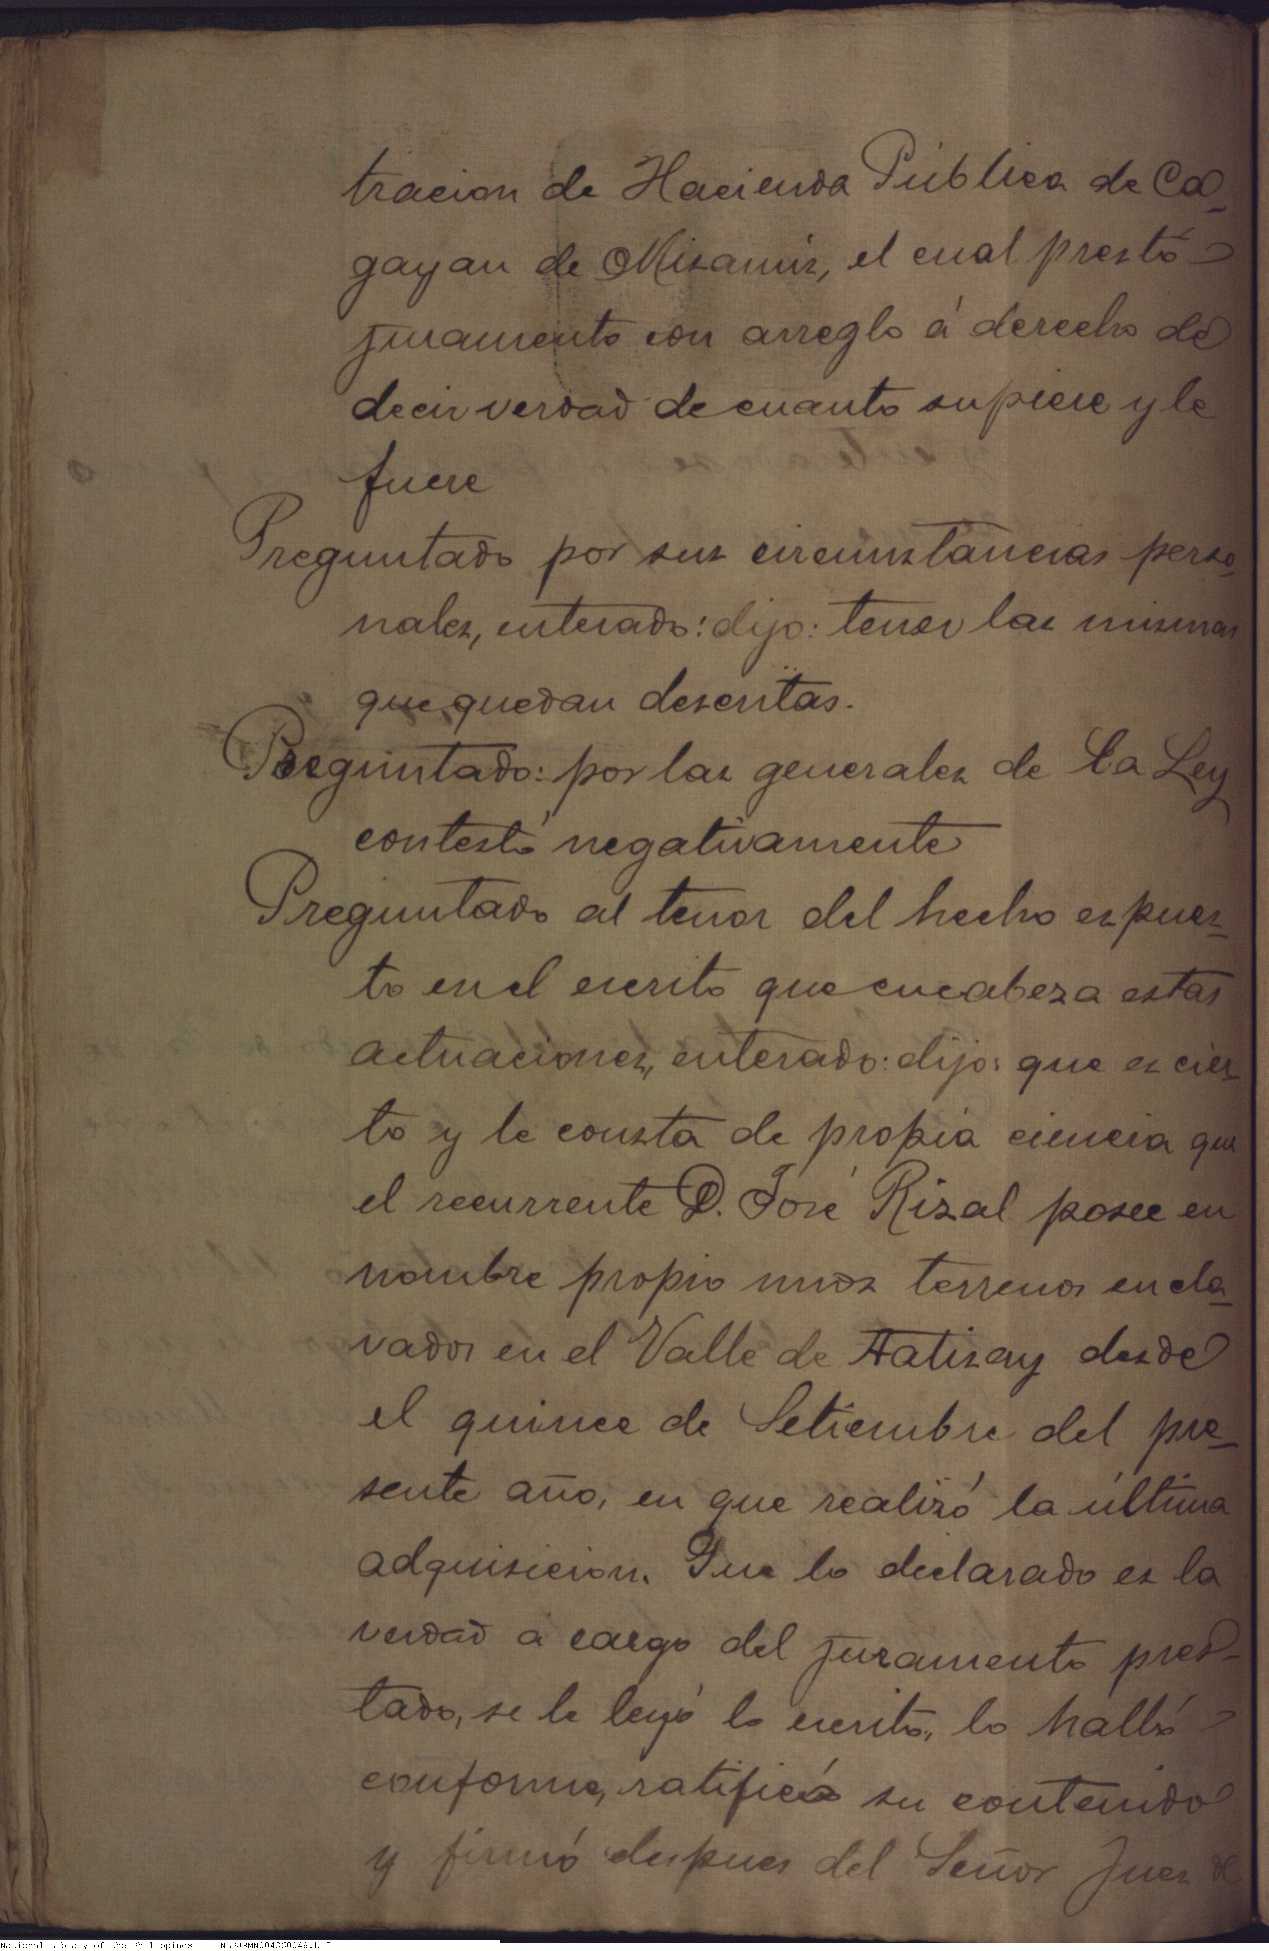 tracion de Hacienda Pública de Ca-
gayan de Misamis, el cual prestó
juramento con arreglo á derecho de
decir verdad de cuanto supiere y le
fuere
Preguntado por sus circunstancias perso-
nales, enterado: dijo: tener las mismas
que quedan descritas.
Preguntado: por las generales de la Ley
contestó negativamente
Preguntado al tenor del hecho espues-
to en el escrito que encabeza estas
actuaciones, enterado: dijo: que es cier-
to y le consta de propia ciencia que
el recurrente D. José Rizal posee en
nombre propio unos terrenos encla-
vados en el Valle de Tatisay desde
el quince de Setiembre del pre-
sente año, en que realizó la última
adquisicion. Que lo declarado es la
verdad a cargo del juramento pres-
tado, se le leyó lo escrito, lo halló
conforme, ratificó su contenido
y firmó despues del Señor Juez de
National Library of the Philippines